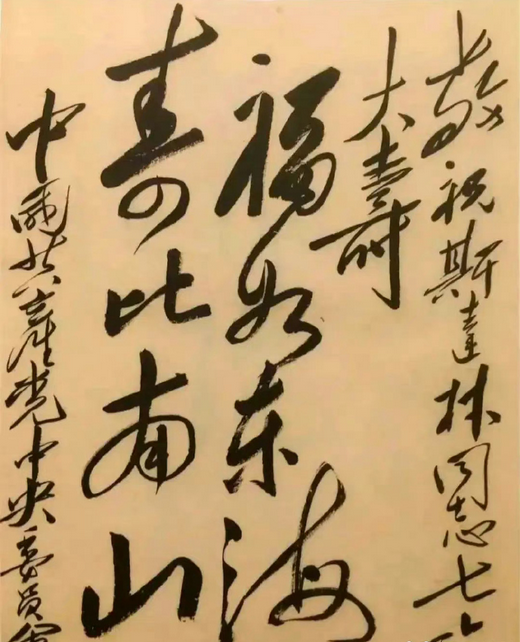 敬祝斯达林同志七
大寿
福如东海
寿比南山
中国共产党中央委员会